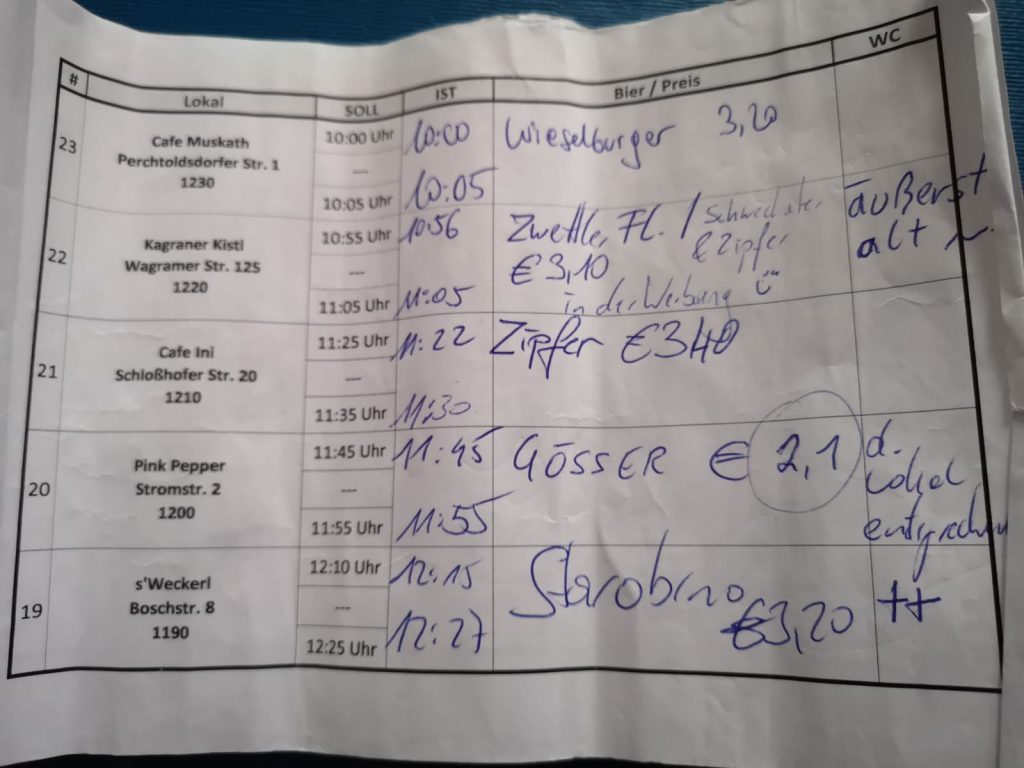 # Lokal SOLL IST Bier / Preis WC
23 Cafe Muskath 10:00 Uhr 10:00 Wieselburger 3,20
Perchtoldsdorfer Str. 1 ---
1230 10:05 Uhr 10:05
22 Kagraner Kistl 10:55 Uhr 10:56 Zwettler Fl. / Schwechater äußerst
Wagramer Str. 125 --- € 3,10 & Zipfer alt
1220 11:05 Uhr 11:05 in der Werbung
21 Cafe Ini 11:25 Uhr 11:22 Zipfer € 340
Schloßhofer Str. 20 ---
1210 11:35 Uhr 11:30
20 Pink Pepper 11:45 Uhr 11:45 GÖSSER € 2,1 d.
Stromstr. 2 --- Lokal
1200 11:55 Uhr 11:55 entsprechend
19 s'Weckerl 12:10 Uhr 12:15 Starobrno ++
Boschstr. 8 --- €3,20
1190 12:25 Uhr 12:27